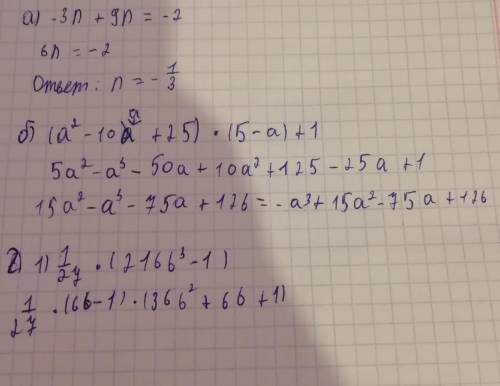 а) -3n + 9n = -2
6n = -2
Ответ: n = - 1/3
б) (a² - 10a + 25) · (5 - a) + 1
5a² - a³ - 50a + 10a² + 125 - 25a + 1
15a² - a³ - 75a + 126 = -a³ + 15a² - 75a + 126
2 1) 1/27 · (216b³ - 1)
1/27 · (6b - 1) · (36b² + 6b + 1)